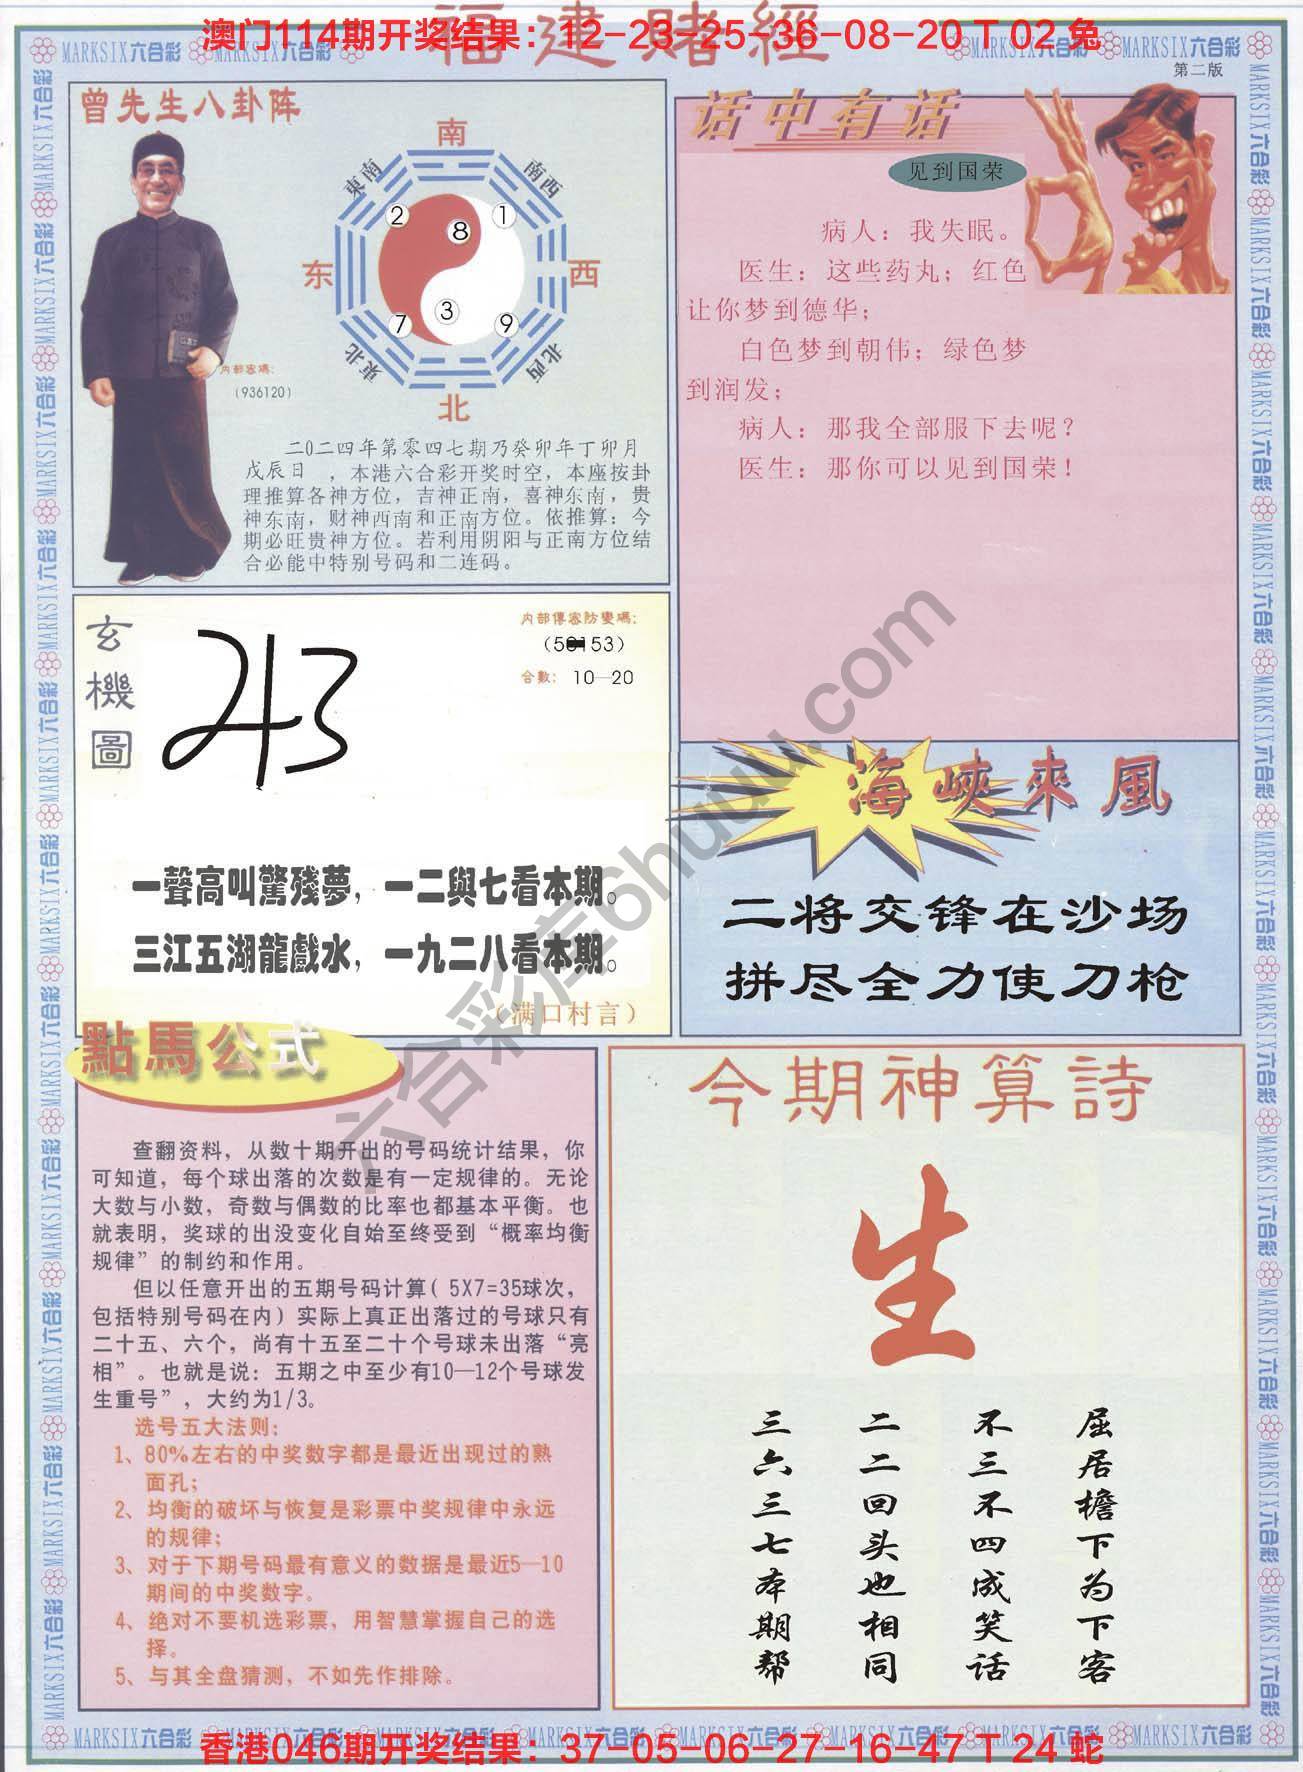 福建賭經
澳门114期开奖结果：12-23-25-36-08-20 T 02 兔
MARKSIX六合彩
第二版
曾先生八卦阵
南
東南
南西
2
1
8
东
西
3
7
9
東北
北西
北
内部密碼：
(936120)
二〇二四年第零四七期乃癸卯年丁卯月
戊辰日，本港六合彩开奖时空，本座按卦
理推算各神方位，吉神正南，喜神东南，贵
神东南，财神西南和正南方位。依推算：今
期必旺贵神方位。若利用阴阳与正南方位结
合必能中特别号码和二连码。
话中有话
见到国荣
病人：我失眠。
医生：这些药丸；红色
让你梦到德华；
白色梦到朝伟；绿色梦
到润发；
病人：那我全部服下去呢？
医生：那你可以见到国荣！
玄機圖
内部傳密防變碼：
合數：10—20
一聲高叫驚殘夢，一二與七看本期。
三江五湖龍戲水，一九二八看本期。
（满口村言）
海峽來風
二将交锋在沙场
拼尽全力使刀枪
點馬公式
查翻资料，从数十期开出的号码统计结果，你
可知道，每个球出落的次数是有一定规律的。无论
大数与小数，奇数与偶数的比率也都基本平衡。也
就表明，奖球的出没变化自始至终受到“概率均衡
规律”的制约和作用。
但以任意开出的五期号码计算（5X7=35球次，
包括特别号码在内）实际上真正出落过的号球只有
二十五、六个，尚有十五至二十个号球未出落“亮
相”。也就是说：五期之中至少有10—12个号球发
生重号”，大约为1/3。
选号五大法则：
1、80%左右的中奖数字都是最近出现过的熟
面孔；
2、均衡的破坏与恢复是彩票中奖规律中永远
的规律；
3、对于下期号码最有意义的数据是最近5—10
期间的中奖数字。
4、绝对不要机选彩票，用智慧掌握自己的选
择。
5、与其全盘猜测，不如先作排除。
今期神算詩
生
屈居檐下为下客
不三不四成笑话
二二回头也相同
三六三七本期帮
六合彩库6huuu.com
香港046期开奖结果：37-05-06-27-16-47 T 24 蛇